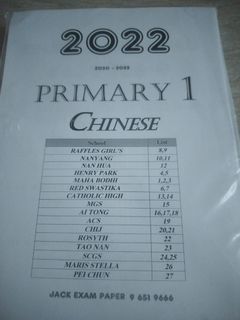 2022
2020 - 2022
PRIMARY 1
CHINESE
School List
RAFFLES GIRL'S 8,9
NANYANG 10,11
NAN HUA 12
HENRY PARK 4,5
MAHA BODHI 1,2,3
RED SWASTIKA 6,7
CATHOLIC HIGH 13,14
MGS 15
AI TONG 16,17,18
ACS 19
CHIJ 20,21
ROSYTH 22
TAO NAN 23
SCGS 24,25
MARIS STELLA 26
PEI CHUN 27
JACK EXAM PAPER 9 651 9666